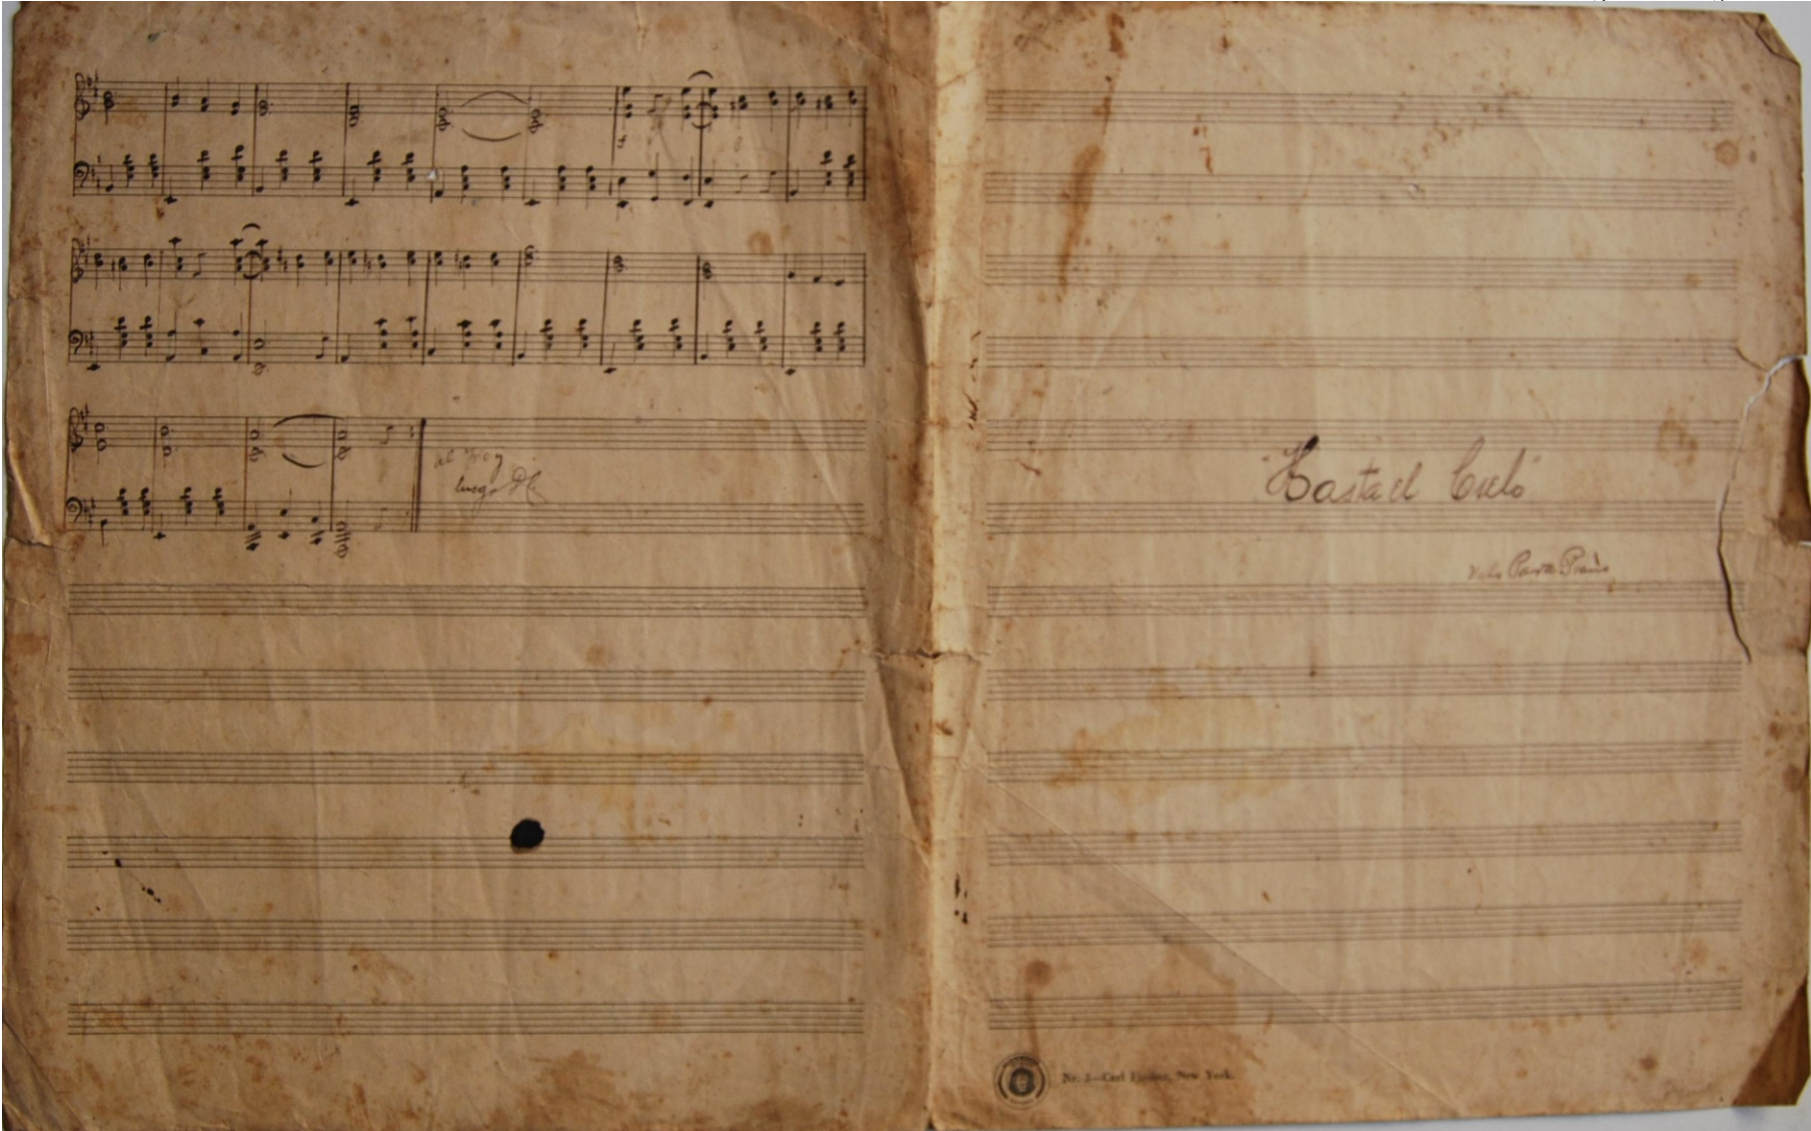 al
luego DC
"Hasta el Cielo"
Vals Para Piano
Nr. 5—Carl Fischer, New York.